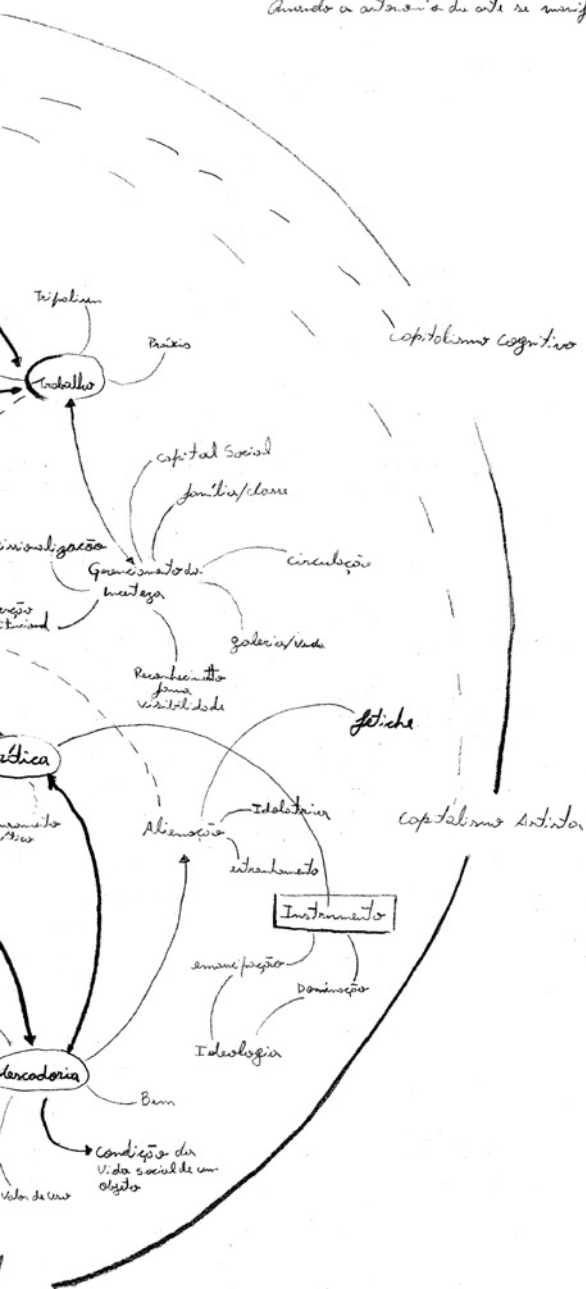 Quando a autonomia da arte se manif
Tripalium
Práxis
Trabalho
capitalismo cognitivo
capital Social
família/classe
issionalização
Gerenciamento da
Incerteza
circulação
itucional
galeria/venda
Reconhecimento
fama
visibilidade
fetiche
Idolatria
Alienação
estranhamento
capitalismo Artista
Instrumento
emancipação
Dominação
Ideologia
Mercadoria
Bem
condição da
Vida social de um
objeto
Valor de uso